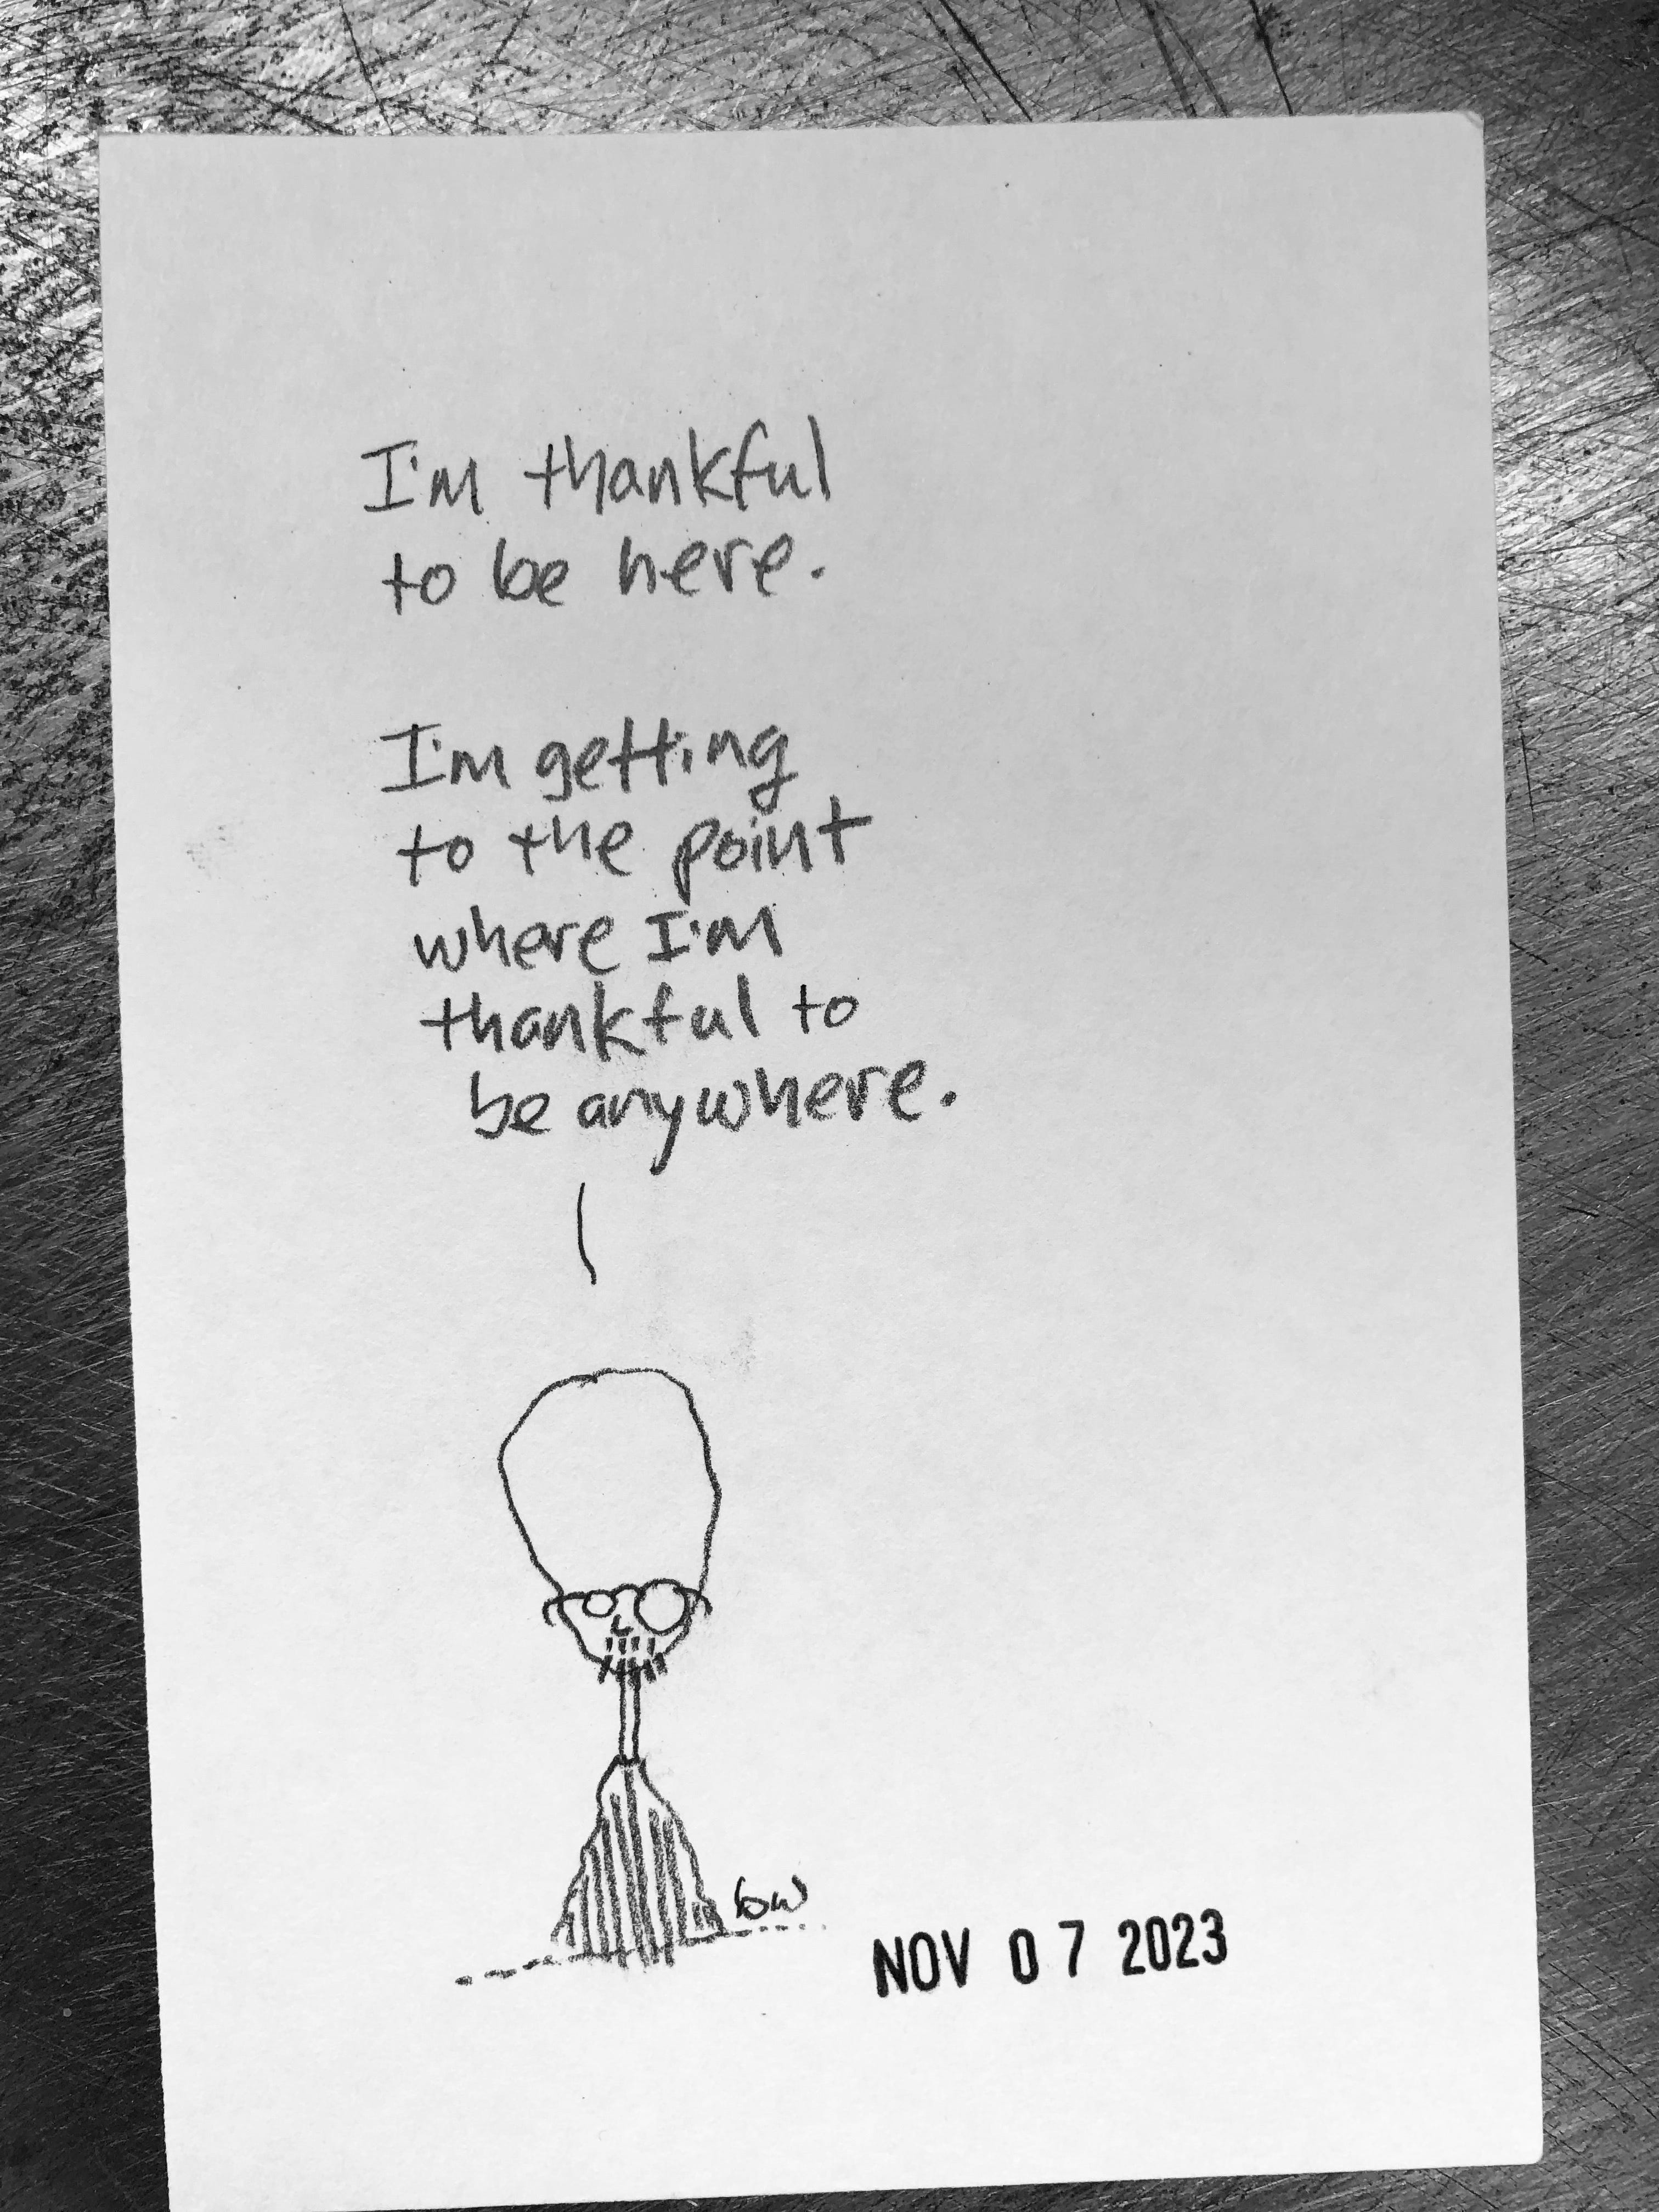 I'm thankful
to be here.
I'm getting
to the point
where I'm
thankful to
be anywhere.
NOV 07 2023